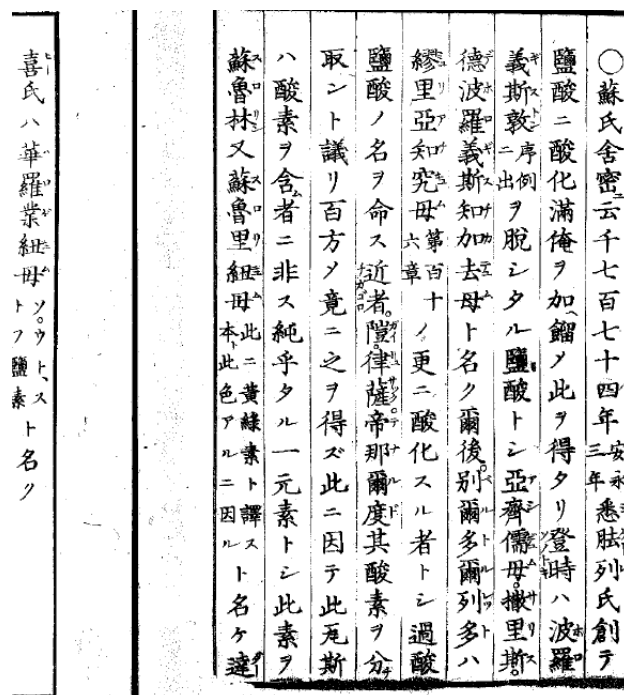 ○蘇氏舎密ニ云千七百七十四年安永三年悉胠列氏創テ
鹽酸ニ酸化滿俺ヲ加ヘ餾ノ此ヲ得タリ登時ハ波羅
義斯敦序例ニ出ヲ脱シタル鹽酸トシ亞齊儒母撒里斯
德波羅義斯知加去母ト名ク爾後別爾多爾列多ハ
繆里亞知究母第百十六章ノ更ニ酸化スル者トシ過酸
鹽酸ノ名ヲ命ス近者愷律薩帝那爾度其酸素ヲ分チ
取ント議リ百方メ竟ニ之ヲ得ズ此ニ因テ此瓦斯
ハ酸素ヲ含ム者ニ非ス純乎タル一元素トシ此素ヲ
蘇魯林又蘇魯里紐母此ニ黄綠素ト譯ス本ト此色アルニ因ルト名ケ達
喜氏ハ華羅業紐母ソウト、ストフ鹽素ト名ク